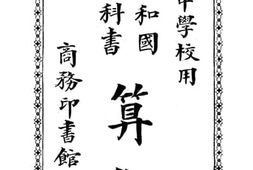 中學校用
和國
科書
算
商務印書館